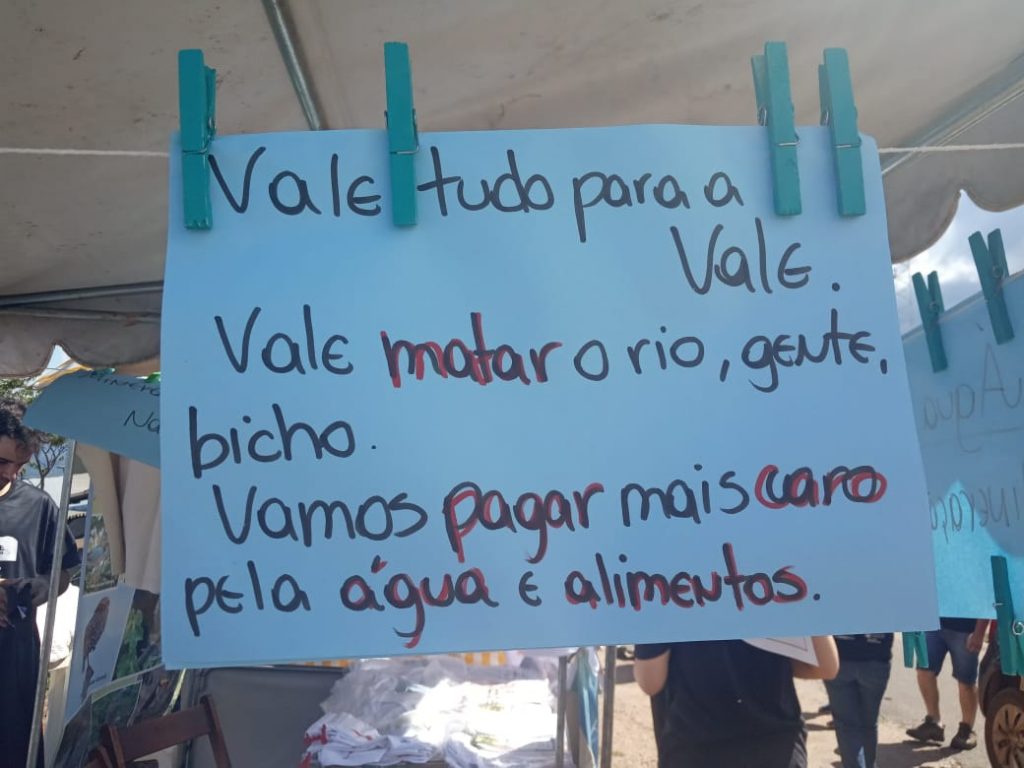 Vale tudo para a
Vale.
Vale matar o rio, gente,
bicho.
Vamos pagar mais caro
pela água e alimentos.
Água